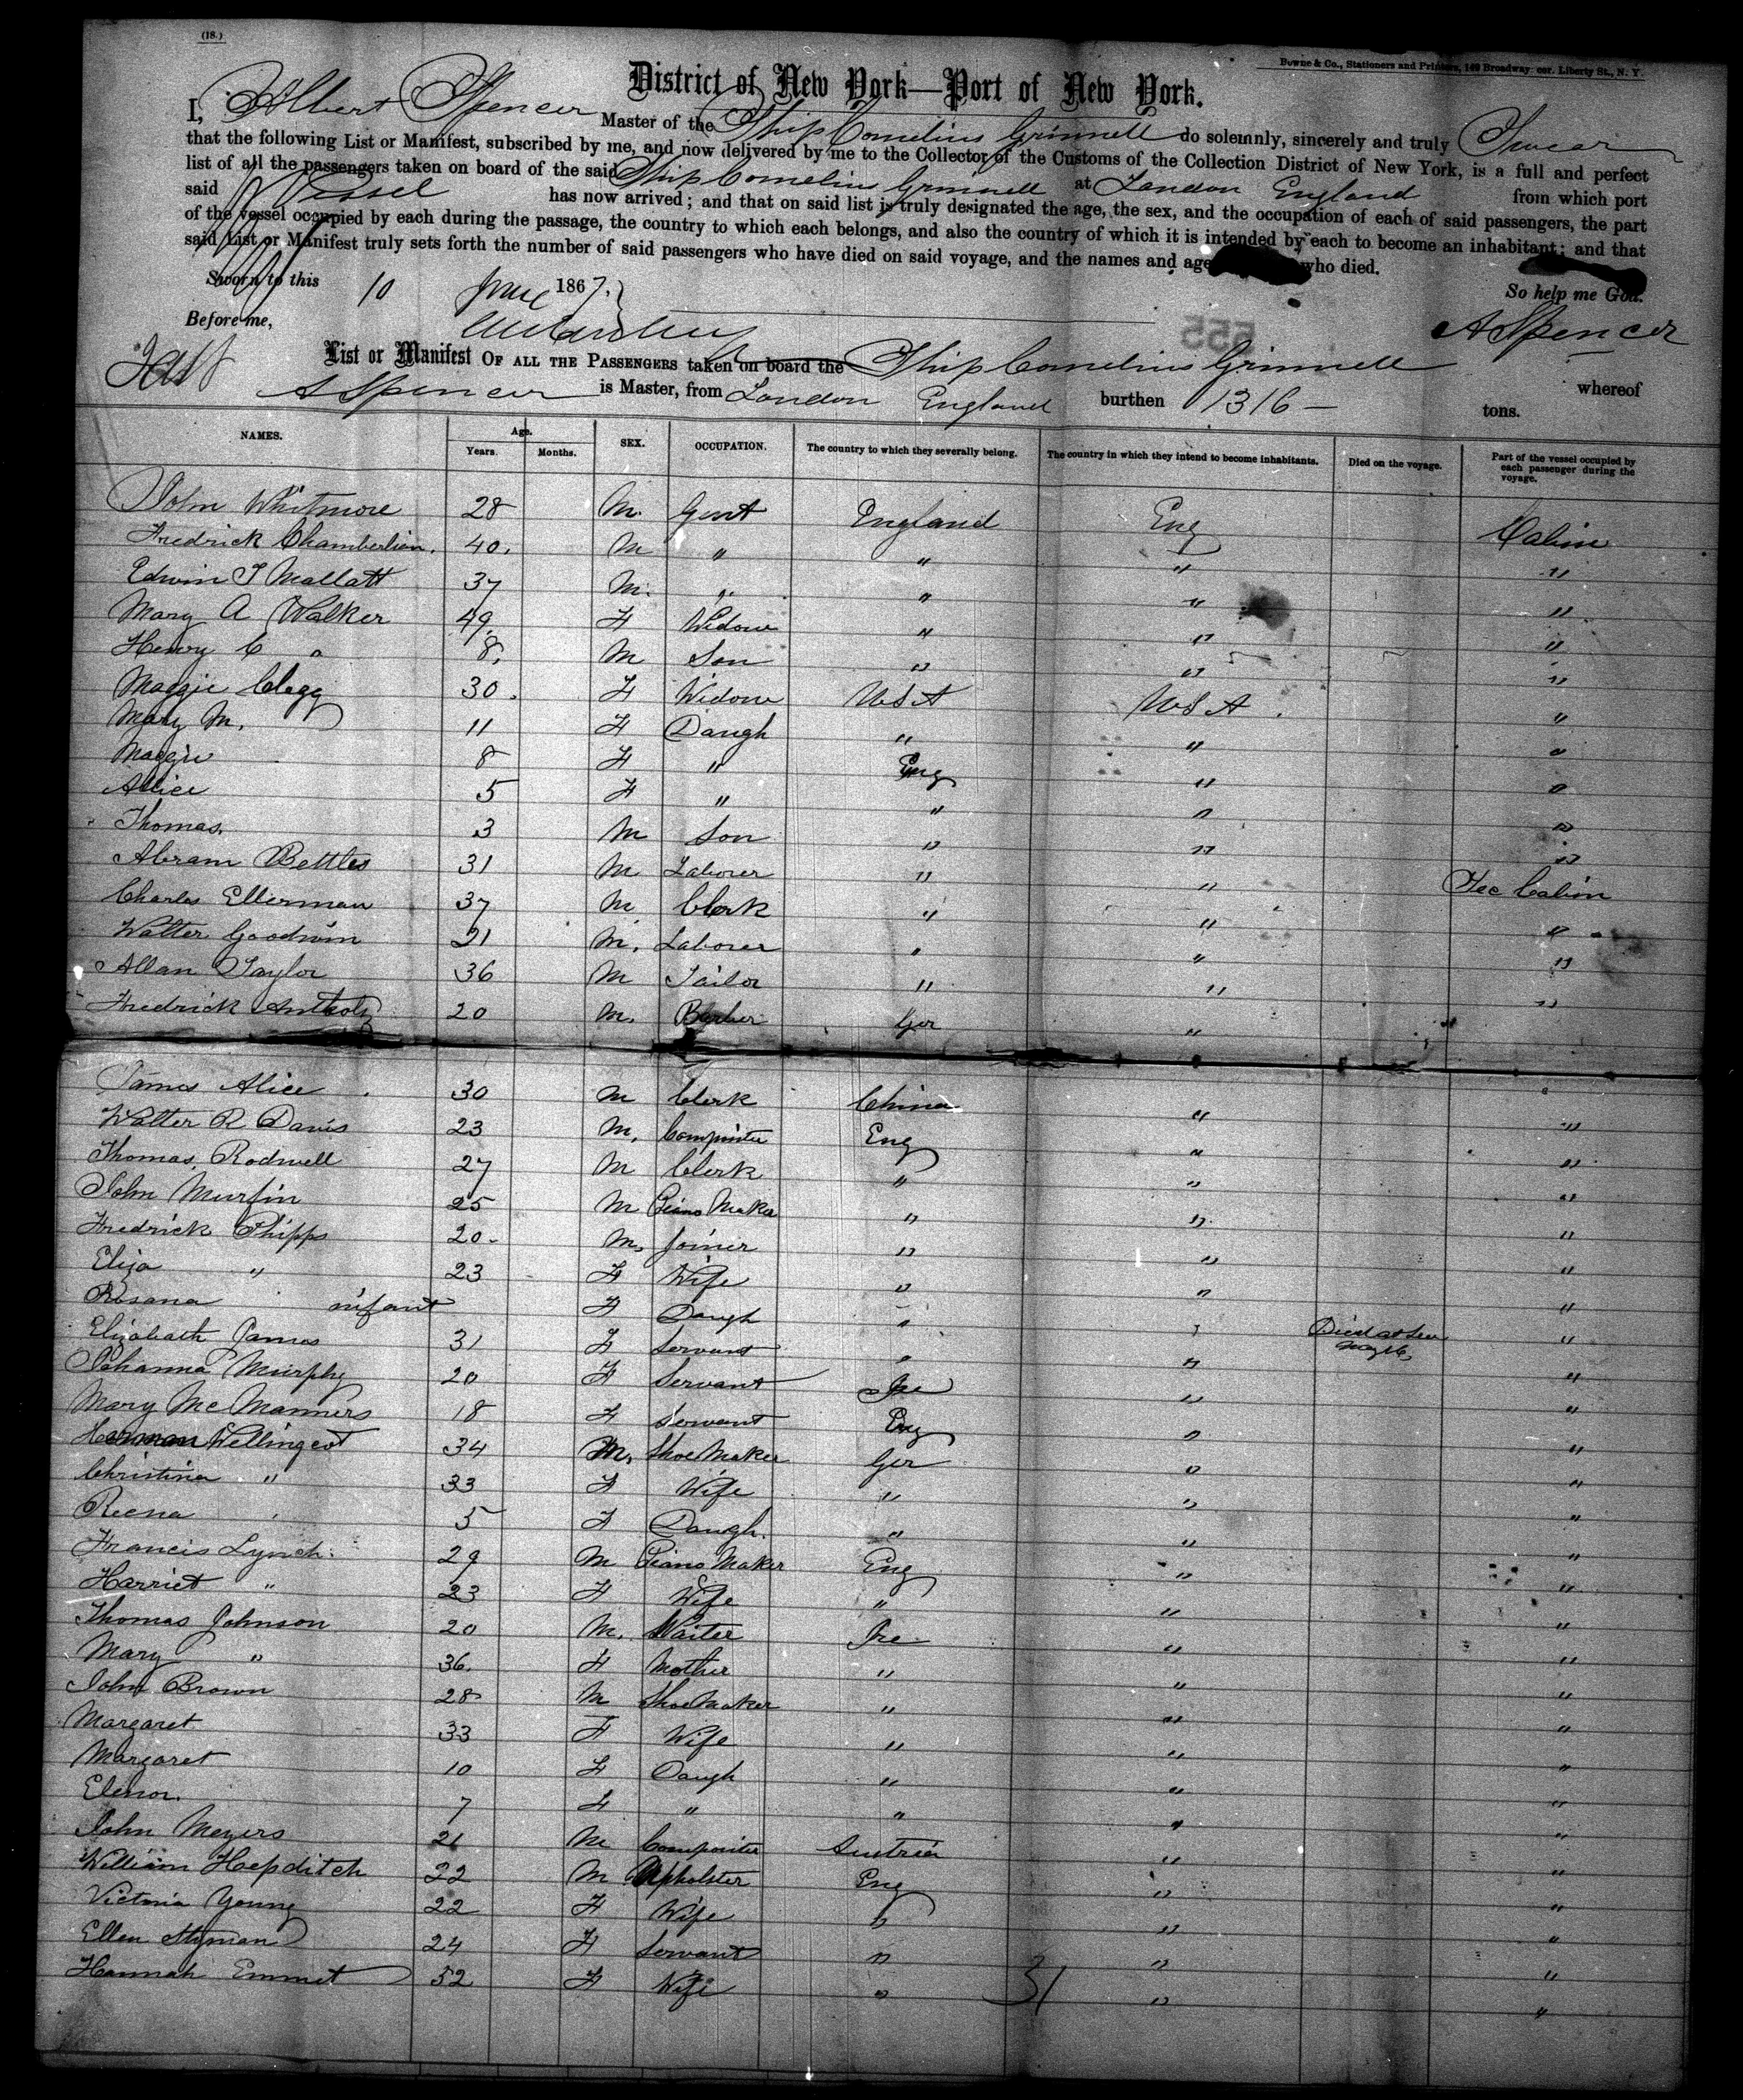 (18.)
Bowne & Co., Stationers and Printers, 149 Broadway cor. Liberty St., N. Y.
District of New York—Port of New York.
I, Albert Spencer Master of the Ship Cornelius Grinnell do solemnly, sincerely and truly Swear
that the following List or Manifest, subscribed by me, and now delivered by me to the Collector of the Customs of the Collection District of New York, is a full and perfect
list of all the passengers taken on board of the said Ship Cornelius Grinnell at London England from which port
said Vessel has now arrived; and that on said list is truly designated the age, the sex, and the occupation of each of said passengers, the part
of the vessel occupied by each during the passage, the country to which each belongs, and also the country of which it is intended by each to become an inhabitant; and that
said List or Manifest truly sets forth the number of said passengers who have died on said voyage, and the names and age who died.
Sworn to this 10 June 1867. So help me God.
Before me, A Spencer
555
List or Manifest OF ALL THE PASSENGERS taken on board the Ship Cornelius Grinnell whereof
A Spencer is Master, from London England burthen 1316 — tons.
NAMES. Age. Years. Months. SEX. OCCUPATION. The country to which they severally belong. The country in which they intend to become inhabitants. Died on the voyage. Part of the vessel occupied by each passenger during the voyage.
John Whitmore 28 M. Gent England Eng Cabin
Fredrick Chamberlian. 40. M " " " "
Edwin T Mallatt 37 M. " " " "
Mary A Walker 49. F Widow " " "
Henry C " 8. M Son " " "
Maggie Clegg 30. F Widow USA USA. "
Mary M. 11 F Daugh " " "
Maggie 8 F " Eng " "
Allice 5 F " " " "
Thomas. 3 M Son " " "
Abram Bettles 31 M Laborer " " Sec Cabin
Charles Ellerman 37 M Clerk " " "
Walter Goodwin 21 M. Laborer " " "
Allan Taylor 36 M Tailor " " "
Fredrick 20 M. Barber Ger "
James Alice 30 M Clerk China " "
Walter R Davis 23 M. Eng " "
Thomas Rodwell 27 M Clerk " " "
John Murfin 25 M Piano Maker " " "
Fredrick Phipps 20. M. Joiner " " "
Eliza " 23 F Wife " " "
Rosana infant F Daugh " " Died at Sea May 16 "
Elizabath James 31 F Servant " " "
Johanna Murphy 20 F Servant Ire " "
Mary Mc Manners 18 F Servant Eng " "
Herman 34 M. Shoe Maker Ger " "
Christina " 33 F Wife " " "
Reena 5 F Daugh. " " "
Francis Lynch. 29 M Piano Maker Eng " "
Harriet " 23 F Wife " " "
Thomas Johnson 20 M. Waiter Ire " "
Mary " 36. F Mother " " "
John Brown 28 M Shoe Maker " " "
Margaret 33 F Wife " " "
Margaret 10 F Daugh " " "
Elenor. 7 F " " " "
John Meyers 21 M Austria " "
William Hoepditch 22 M Upholster Eng " "
Victoria Young 22 F Wife " " "
Ellen Styman 24 F Servant " " "
Hannah Emmet 52 F Wife " " "
31